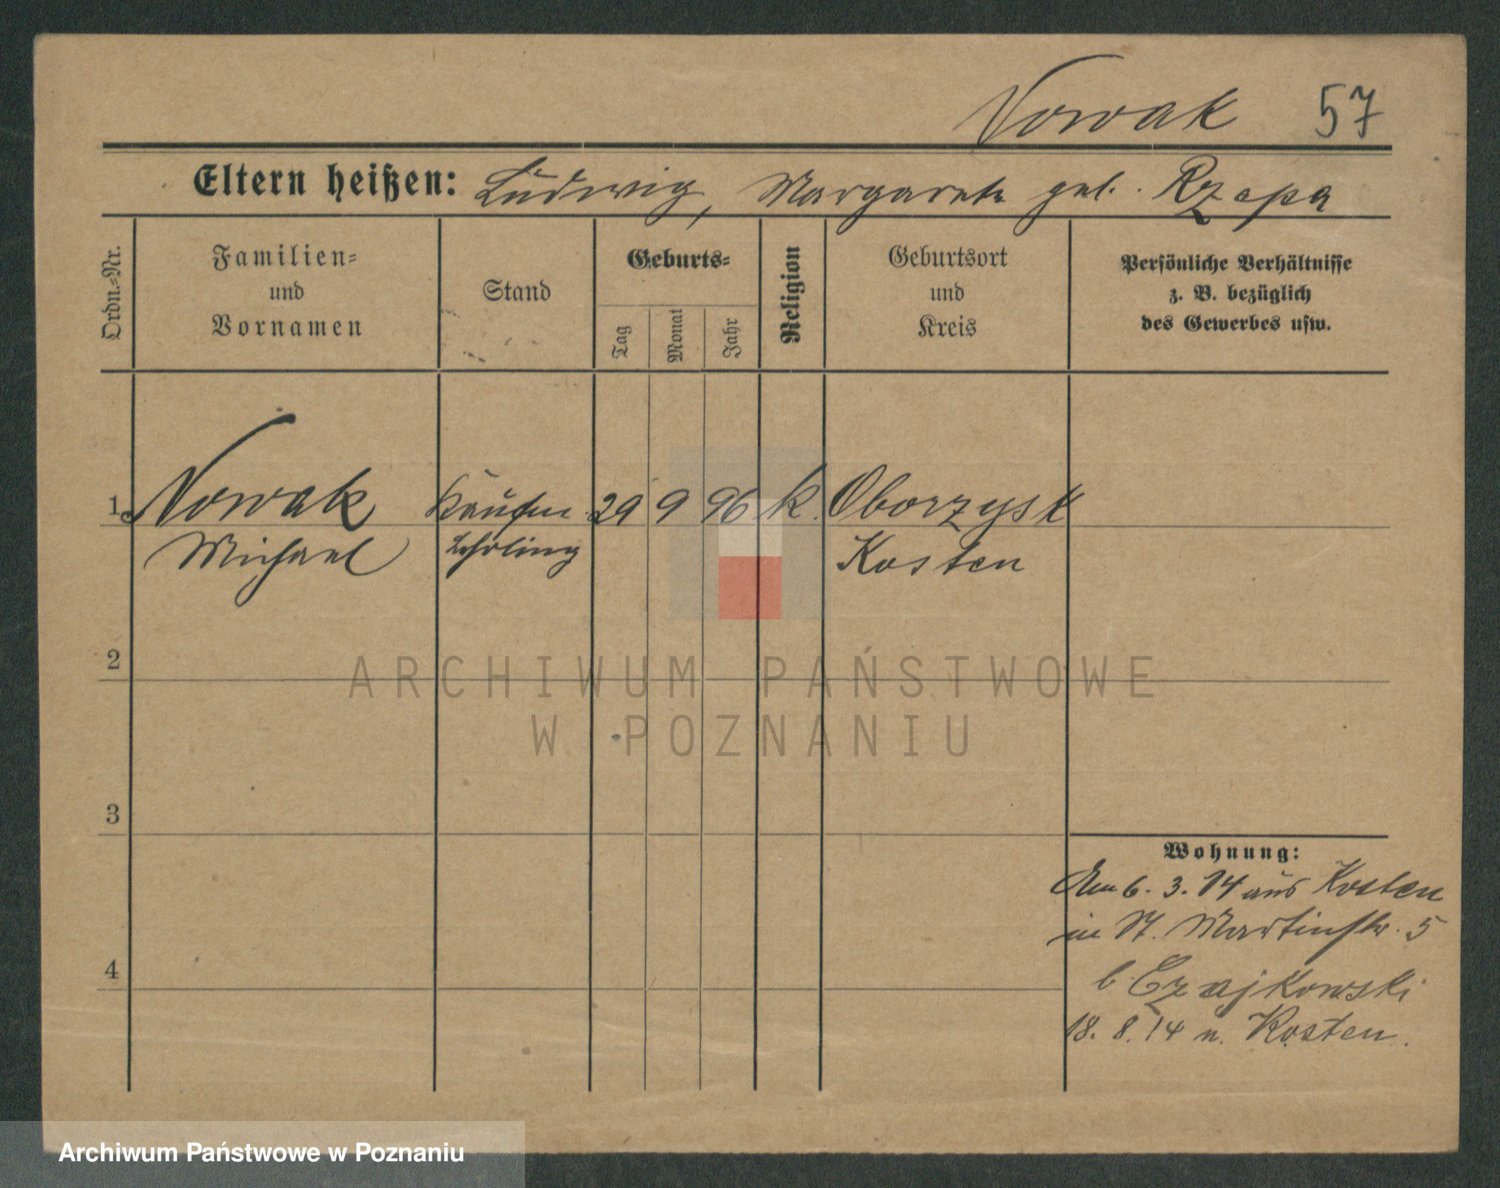 Nowak 57
Eltern heißen: Ludwig, Margarete geb. Rzepa
Ordn.-Nr.
Familien-
und
Vornamen
Stand
Geburts-
Tag
Monat
Jahr
Religion
Geburtsort
und
Kreis
Persönliche Verhältnisse
z. B. bezüglich
des Gewerbes usw.
1. Nowak Kaufm. 29 9 96 k. Oborzysk
Michael Lehrling Kosten
2
ARCHIWUM PAŃSTWOWE
W POZNANIU
3
Wohnung:
Am 6. 3. 14 aus Kosten
in St. Martinstr. 5
b. Czajkowski
4
18. 8. 14 n. Kosten.
Archiwum Państwowe w Poznaniu